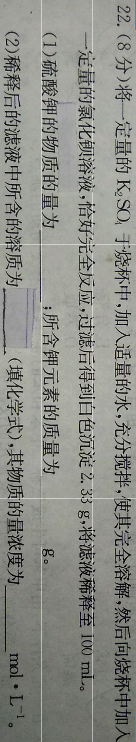 22. (8分)将一定量的 K₂SO₄ 于烧杯中,加入适量的水,充分搅拌,使其完全溶解,然后向烧杯中加入
一定量的氯化钡溶液,恰好完全反应,过滤后得到白色沉淀 2.33 g,将滤液稀释至 100 mL。
(1)硫酸钾的物质的量为______;所含钾元素的质量为______g。
(2)稀释后的滤液中所含的溶质为______(填化学式),其物质的量浓度为______mol·L⁻¹。